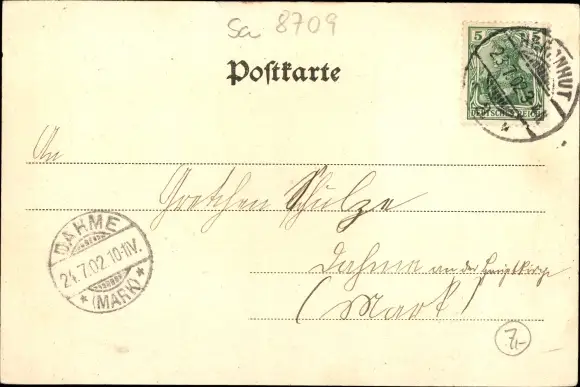 Sa 8709
Postkarte
5
DEUTSCHES REICH
HERRNHUT
23.7.02
An
Gretchen Schulze
Dahme an der Hauptkirche
(Mark)
DAHME
24.7.02.10-11V.
* (MARK) *
7,-